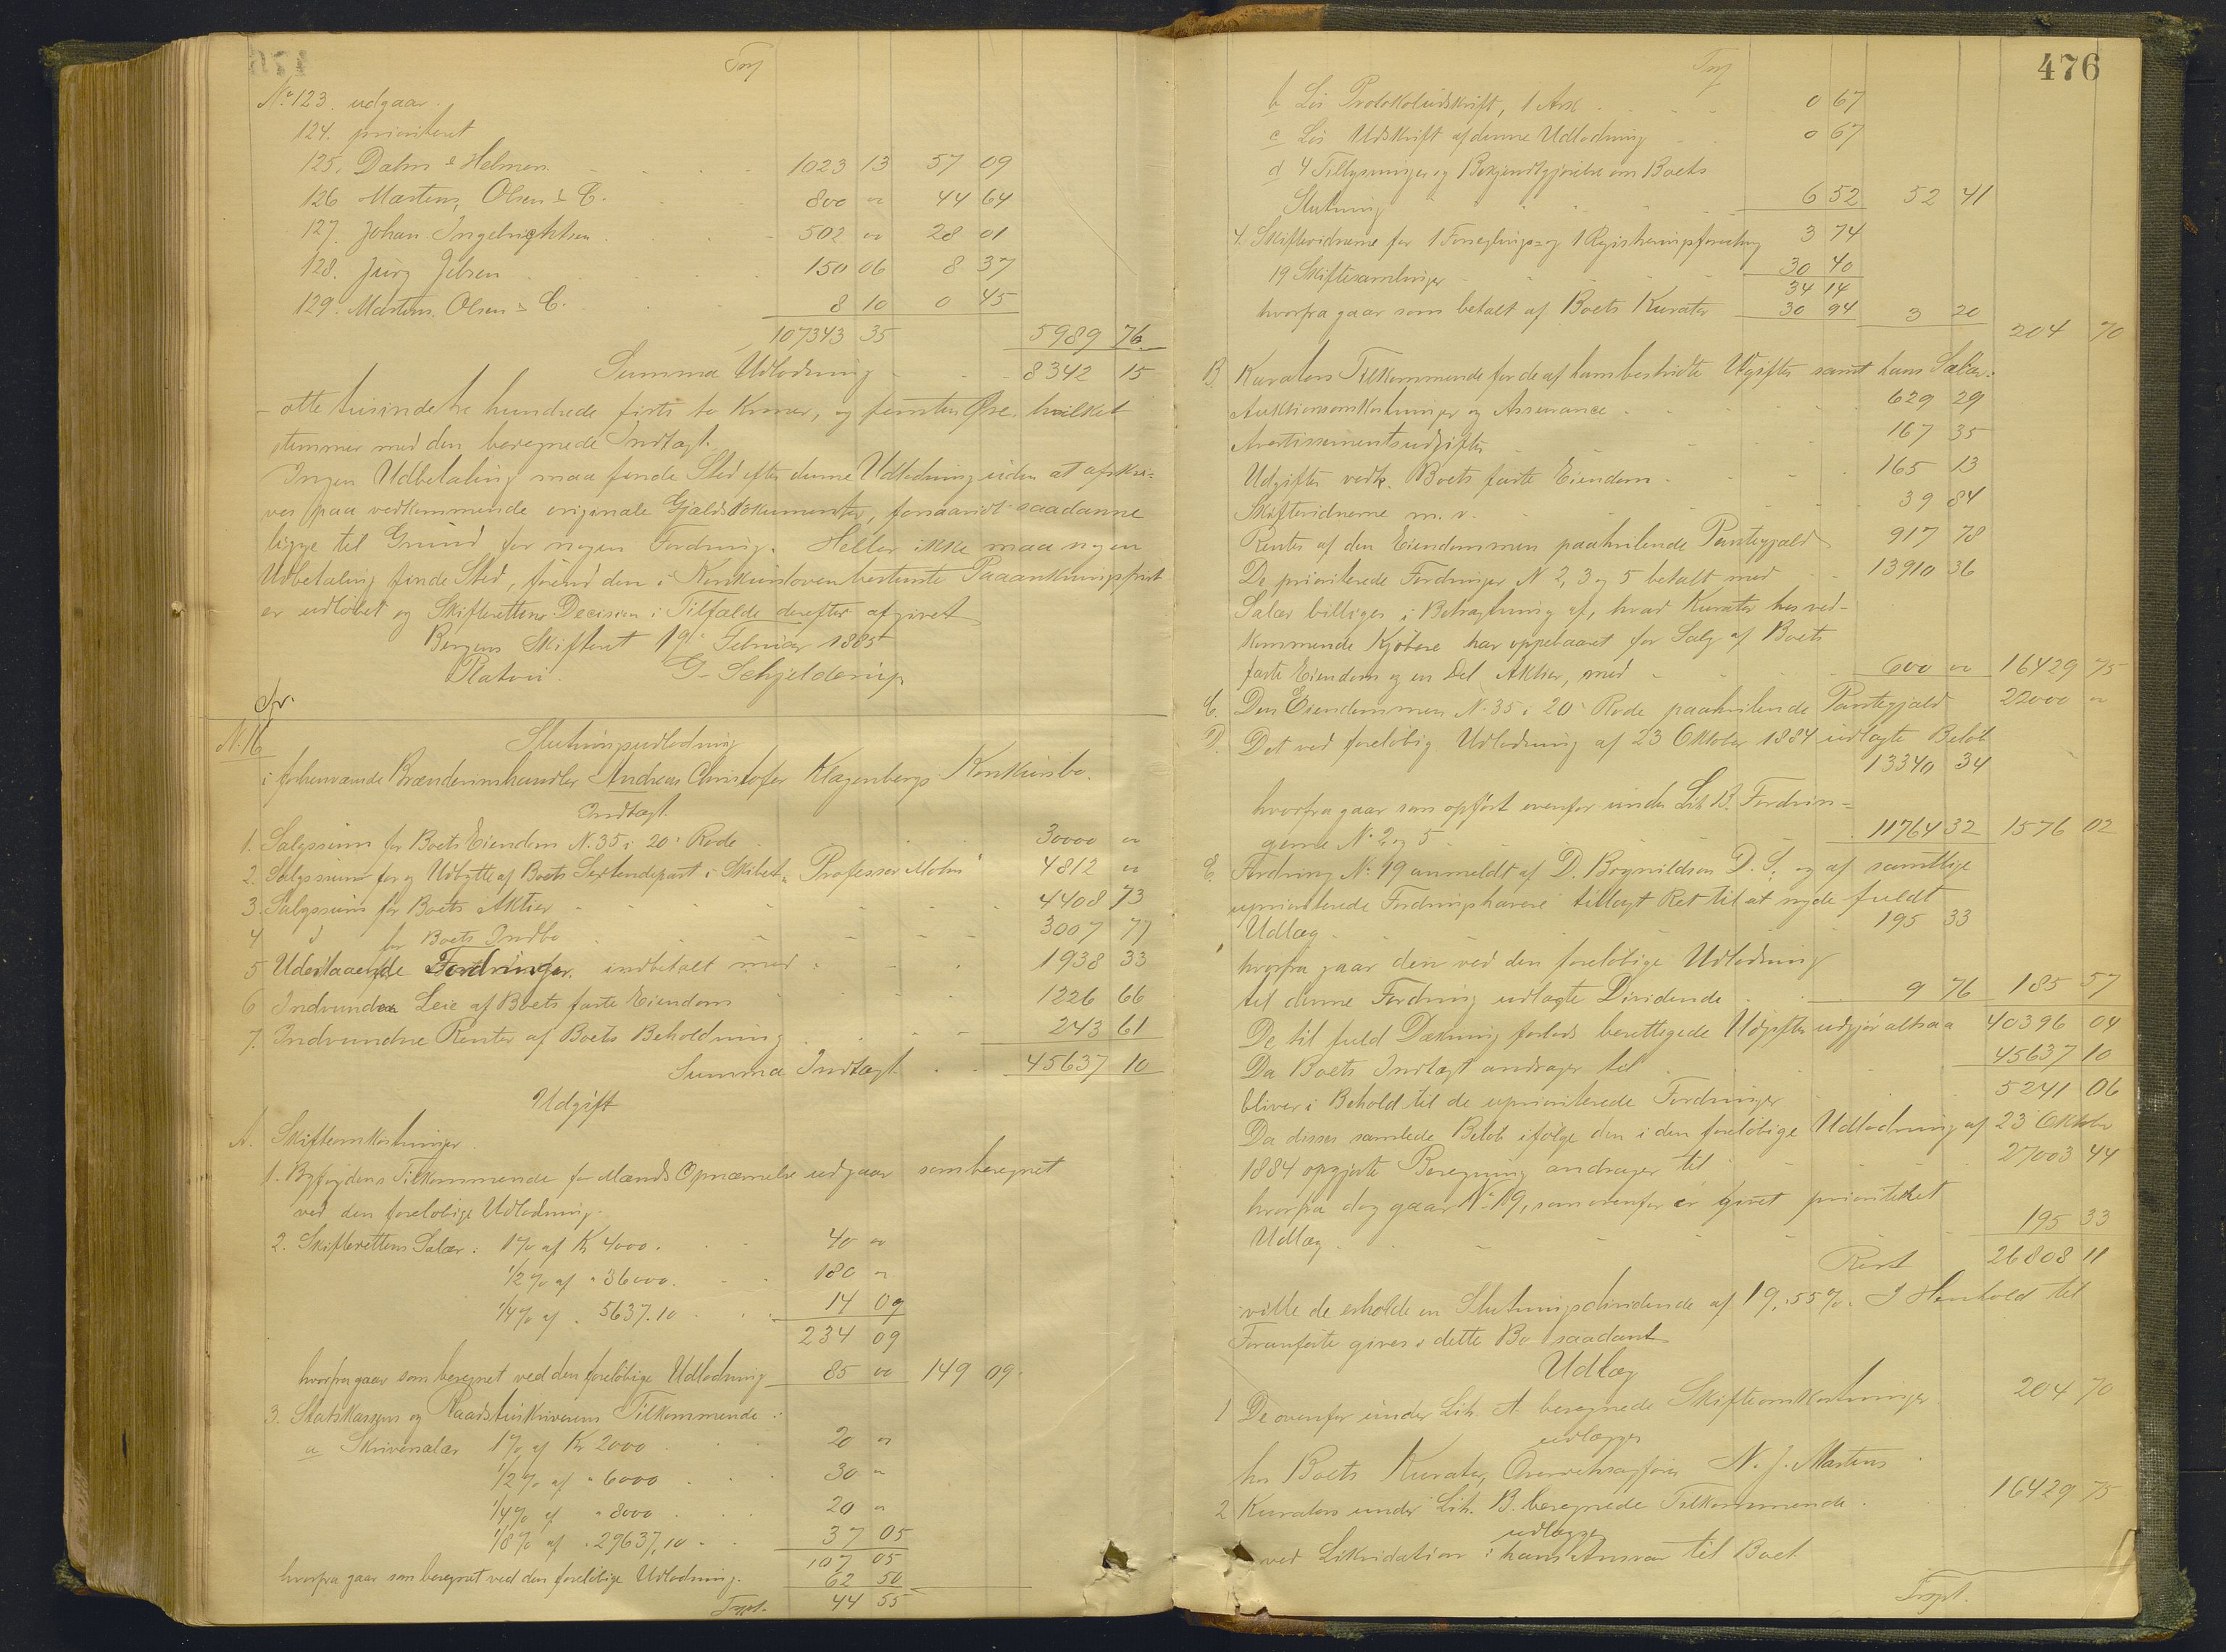 Trsp
No 123. udgaar.
124. prioriteret
125. Dahm & Helmen. 1023 13 57 09
126 Martens, Olsen & C. 800 " 44 64
127. Johan Ingebrigtsen 502 " 28 01
128. Jürg Jebsen 150 06 8 37
129. Martens, Olsen & C. 8 10 0 45
107343 35 5989 76
Summa Udlodning 8342 15
- otte tusinde tre hundrede firti to Kroner, og femten Øre, hvilket
stemmer med den beregnede Indtægt.
Ingen Udbetaling maa finde Sted efter denne Udlodning uden at afskri-
ves paa vedkommende originale Gjældsdokumenter, forsaavidt saadanne
ligge til Grund for nogen Fordring. Heller ikke maa nogen
Udbetaling finde Sted, førend den i Konkursloven bestemte Paaankningsfrist
er udløbet og Skifterettens Decision i Tilfælde derefter afgivet
Bergens Skifteret 19de Februar 1885
Platou. G. Schjelderup
N. 16
Slutningsudlodning
i forhenværende Brændevinshandler Andreas Christofer Klagenbergs Konkursbo.
Indtægt.
1. Salgssum for Boets Eiendom N. 35 i 20' Rode 30000 "
2. Salgssum for og Udbytte af Boets Sextendepart i Skibet "Professor Mohn" 4812 "
3. Salgssum for Boets Aktier 4408 73
4 d for Boets Indbo 3007 77
5 Udestaaende Fordringer. indbetalt med 1938 33
6 Indvunden Leie af Boets faste Eiendom 1226 66
7. Indvundne Renter af Boets Beholdning 243 61
Summa Indtægt 45637 10
Udgift
A. Skifteomkostninger.
1. Byfogdens Tilkommende for Mænds Opnævnelse udgaar som beregnet
ved den foreløbige Udlodning.
2. Skifterettens Salær: 1% af Kr 4000. 40 "
1/2% af " 36000. 180 "
1/4% af " 5637.10 14 09
234 09
hvorfra gaar som beregnet ved den foreløbige Udlodning 85 00 149 09
3. Statskassens og Raadstueskriverens Tilkommende:
a Skriversalær 1% af Kr 2000 20 "
1/2% af " 6000 30 "
1/4% af " 8000 20 "
1/8% af " 29637,10 37 05
107 05
hvorfra gaar som beregnet ved den foreløbige Udlodning. 62 50
Trspt. 44 55
476
Trsp
b Løs Protokoludskrift, 1 Ark 0 67
c Løs Udskrift af denne Udlodning 0 67
d 4 Tillysninger og Bekjendtgjørelse om Boets
Slutning 6 52 52 41
4. Skiftevidnerne for 1 Forseglings- og 1 Registreringsforretning 3 74
19 Skiftesamlinger 30 40
34 14
hvorfra gaar som betalt af Boets Kurator 30 94 3 20
204 70
B. Kurators Tilkommende for de af ham bestridte Udgifter samt hans Salær:
Auktionsomkostninger og Assurance 629 29
Avertissementsudgifter 167 35
Udgifter vedk. Boets faste Eiendom 165 13
Skiftevidnerne m. v. 39 84
Renter af den Eiendommen paahvilende Pantegjæld 917 78
De prioriterede Fordringer N 2, 3 og 5 betalt med 13910 36
Salær billiges i Betragtning af, hvad Kurator hos ved-
kommende Kjøbere har oppebaaret for Salg af Boets
faste Eiendom og en Del Aktier, med 600 " 16429 75
C. Den Eiendommen N. 35 i 20' Rode paahvilende Pantegjæld 22000 "
D. Det ved foreløbig Udlodning af 23 Oktober 1884 udlagte Beløb
13340 34
hvorfra gaar som opført ovenfor under Lit B. Fordrin-
gerne N. 2 og 5 11764 32 1576 02
E. Fordring No 19 anmeldt af D. Brynildsen D. S. og af samtlige
uprioriterede Fordringshavere tillagt Ret til at nyde fuldt
Udlæg 195 33
hvorfra gaar den ved den foreløbige Udlodning
til denne Fordring udlagte Dividende 9 76 185 57
De til fuld Dækning forlods berettigede Udgifter udgjør altsaa 40396 04
Da Boets Indtægt andrager til 45637 10
bliver i Behold til de uprioriterede Fordringer 5241 06
Da disses samlede Beløb ifølge den i den foreløbige Udlodning af 23 Oktober
1884 opgjorte Beregning andrager til 27003 44
hvorfra dog gaar No 19, som ovenfor er givet prioriteret
Udlæg 195 33
Rest 26808 11
ville de erholde en Slutningsdividende af 19,55%. I Henhold til
Foranførte gives i dette Bo saadant
Udlæg
1 De ovenfor under Lit. A beregnede Skifteomkostninger 204 70
udlægges
hos Boets Kurator, Overretssagfører N. J. Martens
2 Kurators under Lit. B. beregnede Tilkommende 16429 75
udlægges
ved Likvidation i hans Ansvar til Boet
Trspt.